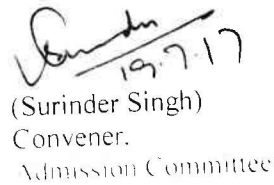 19.7.17
(Surinder Singh)
Convener.
Admission Committee